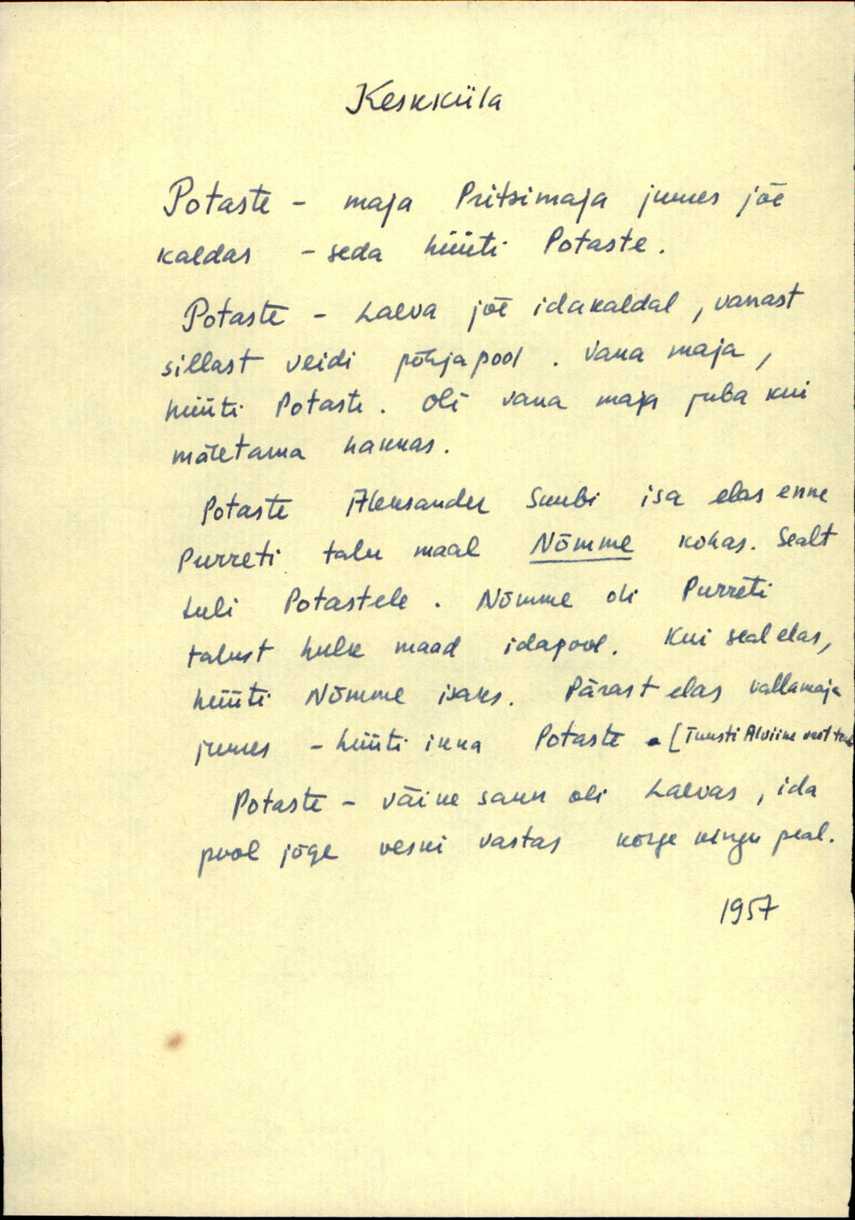 Keskküla
Potaste - maja Pritsimaja juures jõe
kaldas - seda hüüti Potaste.
Potaste - Laeva jõe idakaldal, vanast
sillast veidi põhjapool. Vana maja,
hüüti Potaste. Oli vana maja juba kui
mäletama hakkas.
Potaste Aleksander Suubi isa elas enne
Purreti talu maal Nõmme kohas. Sealt
tuli Potastele. Nõmme oli Purreti
talust hulk maad idapool. Kui seal elas,
hüüti Nõmme isaks. Pärast elas vallamaja
juures - hüüti ikka Potaste. [Tuusti Alviine
Potaste - väike saun oli Laevas, ida
pool jõge veski vastas kõrge kingu peal.
1957